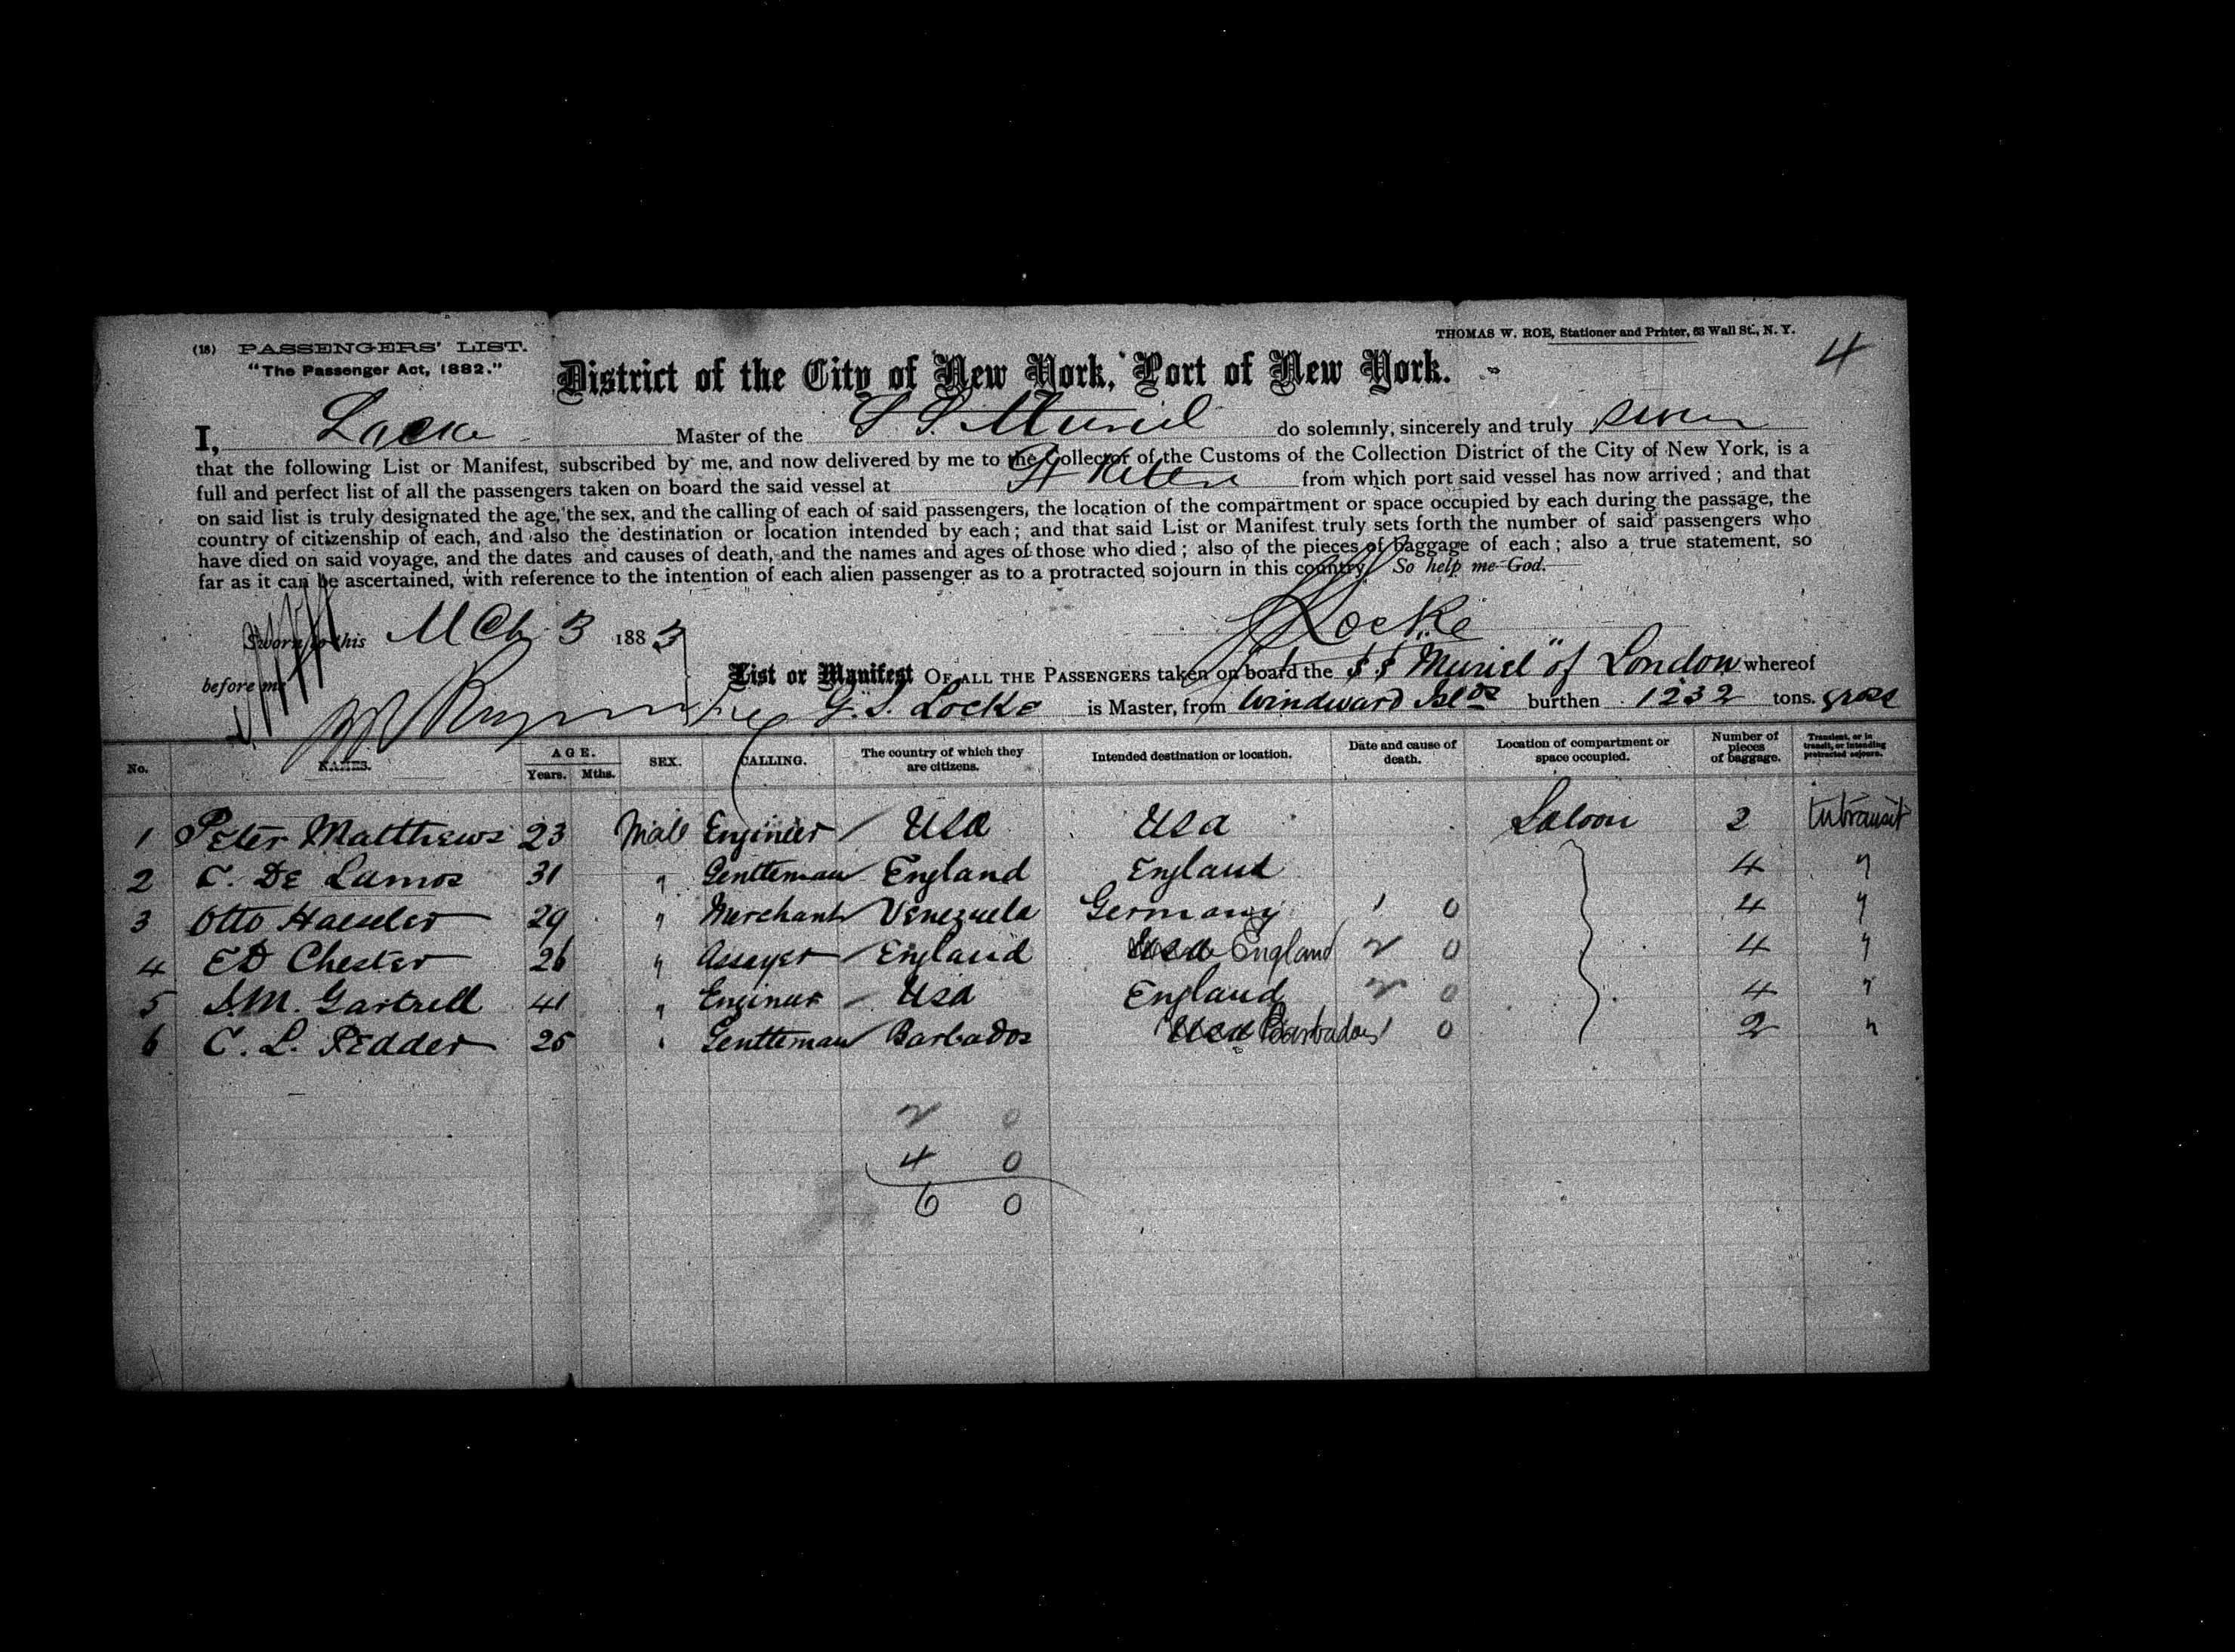 (18) PASSENGERS' LIST.
THOMAS W. ROE, Stationer and Prnter, 63 Wall St., N. Y.
4
"The Passenger Act, 1882."
District of the City of New York, Port of New York.
I, Locke Master of the S S. Muriel do solemnly, sincerely and truly swear
that the following List or Manifest, subscribed by me, and now delivered by me to the Collector of the Customs of the Collection District of the City of New York, is a
full and perfect list of all the passengers taken on board the said vessel at St Kitts from which port said vessel has now arrived; and that
on said list is truly designated the age, the sex, and the calling of each of said passengers, the location of the compartment or space occupied by each during the passage, the
country of citizenship of each, and also the destination or location intended by each; and that said List or Manifest truly sets forth the number of said passengers who
have died on said voyage, and the dates and causes of death, and the names and ages of those who died; also of the pieces of baggage of each; also a true statement, so
far as it can be ascertained, with reference to the intention of each alien passenger as to a protracted sojourn in this country. So help me God.
Sworn to this Mch 3 1883
Locke
before me
List or Manifest OF ALL THE PASSENGERS taken on board the SS "Muriel" of London whereof
G. S. Locke is Master, from Windward Islds burthen 1232 tons. gross
No. NAMES. AGE. Years. Mths. SEX. CALLING. The country of which they are citizens. Intended destination or location. Date and cause of death. Location of compartment or space occupied. Number of pieces of baggage. Transient, or in transit, or intending protracted sojourn.
1 Peter Matthews 23 Male Engineer USA USA Saloon 2 Intransit
2 C. De Lamos 31 " Gentleman England England 4 "
3 Otto Haesler 29 " Merchant Venezuela Germany 1 0 4 "
4 ED Chester 26 " Assayer England England 2 0 4 "
5 S.M. Gartrell 41 " Engineer USA England 2 0 4 "
6 C. L. Pedder 25 " Gentleman Barbados Barbados 1 0 2 "
2 0
4 0
6 0